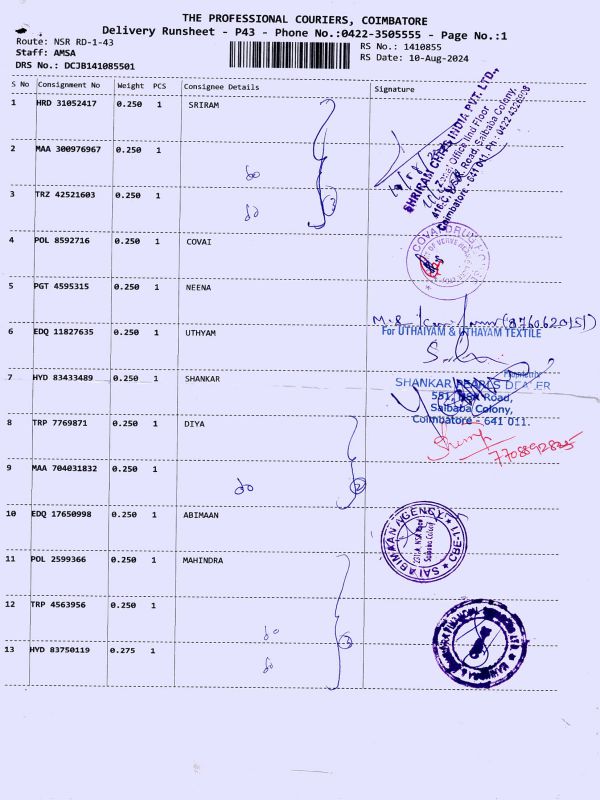 THE PROFESSIONAL COURIERS, COIMBATORE
Delivery Runsheet - P43 - Phone No.:0422-3505555 - Page No.:1
Route: NSR RD-1-43
RS No.: 1410855
Staff: AMSA
RS Date: 10-Aug-2024
DRS No.: DCJB141085501
S No Consignment No Weight PCS Consignee Details Signature
1 HRD 31052417 0.250 1 SRIRAM
SHRIRAM CHITS INDIA PVT. LTD.,
Zonal Office IInd Floor
416-C, N.S.R. Road, Saibaba Colony,
Coimbatore - 641 011. Ph : 0422 4326808
2 MAA 300976967 0.250 1
do
3 TRZ 42521603 0.250 1
do
3
4 POL 8592716 0.250 1 COVAI
COVAI DRUG
5 PGT 4595315 0.250 1 NEENA
6 EDQ 11827635 0.250 1 UTHYAM
For UTHAIYAM & UTHAYAM TEXTILE
7 HYD 83433489 0.250 1 SHANKAR
SHANKAR PEARLS DEALER
551, NSR Road,
Saibaba Colony,
Coimbatore - 641 011.
8 TRP 7769871 0.250 1 DIYA
7708892825
9 MAA 704031832 0.250 1
do
2
10 EDQ 17650998 0.250 1 ABIMAAN
SAI ABIMAAN AGENCY * CBE-11 *
11 POL 2599366 0.250 1 MAHINDRA
12 TRP 4563956 0.250 1
do
3
13 HYD 83750119 0.275 1
do